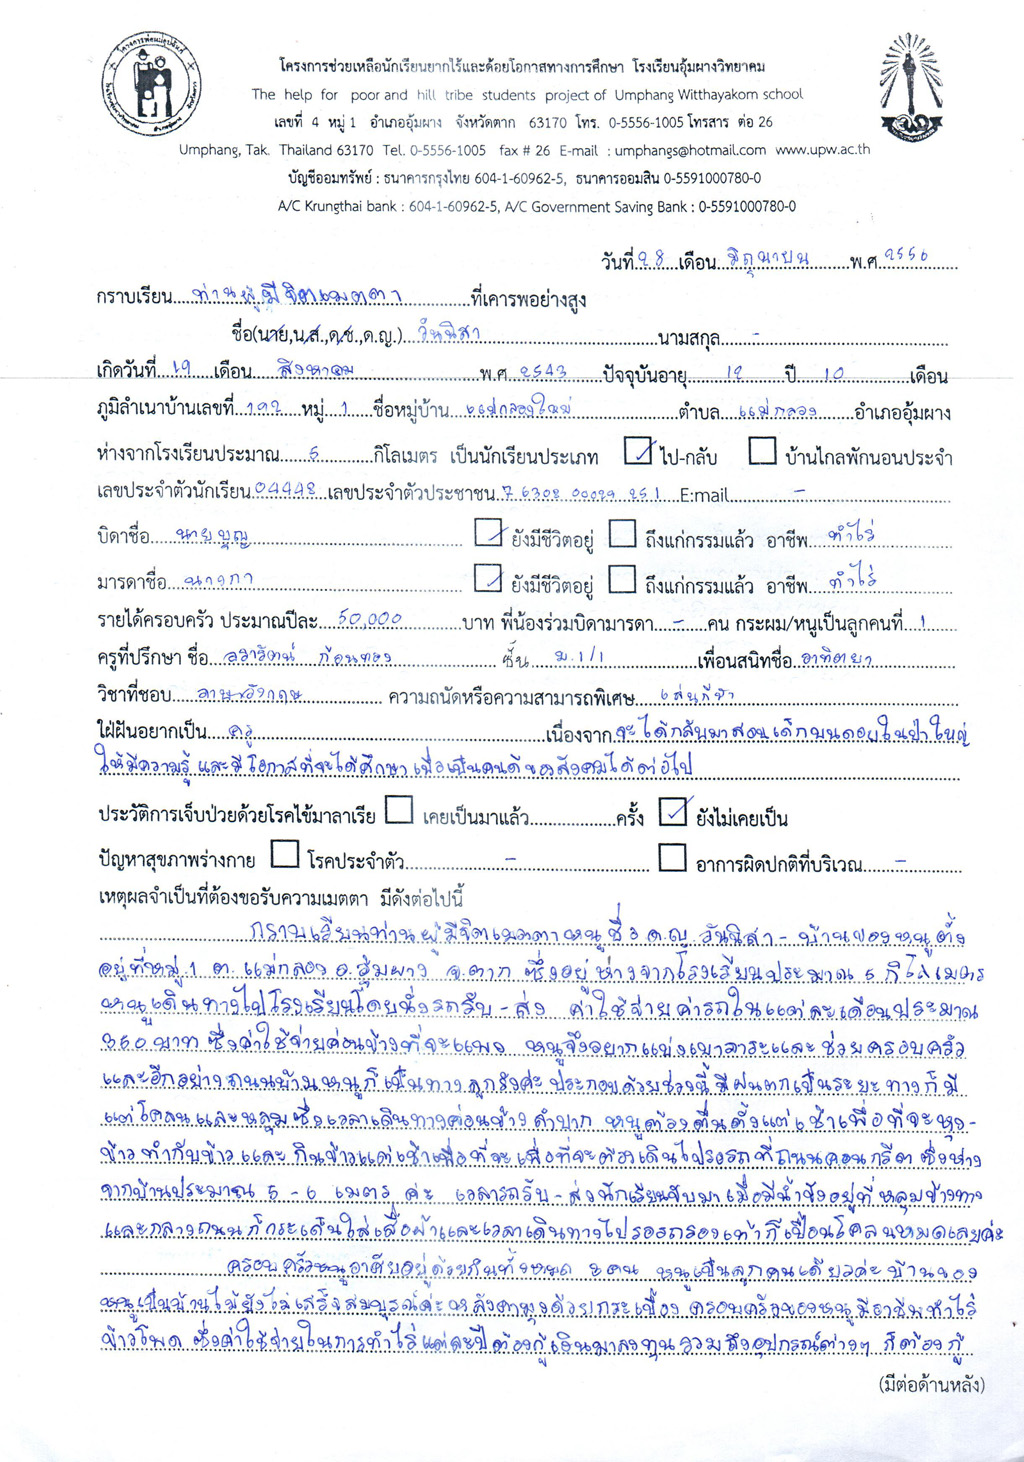 โครงการช่วยเหลือนักเรียนยากไร้และด้อยโอกาสทางการศึกษา โรงเรียนอุ้มผางวิทยาคม
The help for poor and hill tribe students project of Umphang Witthayakom school
เลขที่ 4 หมู่ 1 อำเภออุ้มผาง จังหวัดตาก 63170 โทร. 0-5556-1005 โทรสาร ต่อ 26
Umphang, Tak. Thailand 63170 Tel. 0-5556-1005 fax # 26 E-mail : umphangs@hotmail.com www.upw.ac.th
บัญชีออมทรัพย์ : ธนาคารกรุงไทย 604-1-60962-5, ธนาคารออมสิน 0-5591000780-0
A/C Krungthai bank : 604-1-60962-5, A/C Government Saving Bank : 0-5591000780-0
วันที่ 28 เดือน มิถุนายน พ.ศ. 2556
กราบเรียน ท่านผู้มีจิตเมตตา ที่เคารพอย่างสูง
ชื่อ(นาย,น.ส.,ด.ช.,ด.ญ.) วันนิสา นามสกุล -
เกิดวันที่ 19 เดือน สิงหาคม พ.ศ 2543 ปัจจุบันอายุ 12 ปี 10 เดือน
ภูมิลำเนาบ้านเลขที่ 192 หมู่ 1 ชื่อหมู่บ้าน แม่กลองใหม่ ตำบล แม่กลอง อำเภออุ้มผาง
ห่างจากโรงเรียนประมาณ 5 กิโลเมตร เป็นนักเรียนประเภท ไป-กลับ บ้านไกลพักนอนประจำ
เลขประจำตัวนักเรียน 04448 เลขประจำตัวประชาชน 7 6308 00029 25 1 E:mail -
บิดาชื่อ นายบุญ ยังมีชีวิตอยู่ ถึงแก่กรรมแล้ว อาชีพ ทำไร่
มารดาชื่อ นางกา ยังมีชีวิตอยู่ ถึงแก่กรรมแล้ว อาชีพ ทำไร่
รายได้ครอบครัว ประมาณปีละ 50,000 บาท พี่น้องร่วมบิดามารดา - คน กระผม/หนูเป็นลูกคนที่ 1
ครูที่ปรึกษา ชื่อ ก้อนทอง ชั้น ม.1/1 เพื่อนสนิทชื่อ อาทิตยา
วิชาที่ชอบ ภาษาอังกฤษ ความถนัดหรือความสามารถพิเศษ เล่นกีฬา
ใฝ่ฝันอยากเป็น ครู เนื่องจาก จะได้กลับมาสอนเด็กบนดอยในป่าใหญ่
ให้มีความรู้ และมีโอกาสที่จะได้ศึกษาเพื่อเป็นคนดีของสังคมได้ต่อไป
ประวัติการเจ็บป่วยด้วยโรคไข้มาลาเรีย เคยเป็นมาแล้ว ครั้ง ยังไม่เคยเป็น
ปัญหาสุขภาพร่างกาย โรคประจำตัว - อาการผิดปกติที่บริเวณ -
เหตุผลจำเป็นที่ต้องขอรับความเมตตา มีดังต่อไปนี้
กราบเรียนท่านผู้มีจิตเมตตา หนูชื่อ ด.ญ. วันนิสา - บ้านของหนูตั้ง
อยู่ที่หมู่ 1 ต. แม่กลอง อ.อุ้มผาง จ.ตาก ซึ่งอยู่ห่างจากโรงเรียนประมาณ 5 กิโลเมตร
หนูเดินทางไปโรงเรียนโดยนั่งรถรับ-ส่ง ค่าใช้จ่ายค่ารถในแต่ละเดือนประมาณ
350 บาท ซึ่งค่าใช้จ่ายค่อนข้างที่จะแพง หนูจึงอยากแบ่งเบาภาระและช่วยครอบครัว
และอีกอย่างถนนบ้านหนูก็เป็นทางลูกรังค่ะ ประกอบด้วยช่วงนี้มีฝนตกเป็นระยะ ทางก็มี
แต่โคลนและหลุมซึ่งเวลาเดินทางค่อนข้างลำบาก หนูต้องตื่นตั้งแต่เช้าเพื่อที่จะหุง-
ข้าว ทำกับข้าว และกินข้าวแต่เช้าเพื่อที่จะ เพื่อที่จะต้องเดินไปรอรถที่ถนนคอนกรีต ซึ่งห่าง
จากบ้านประมาณ 5 - 6 เมตร ค่ะ เวลารถรับ-ส่งนักเรียนขับมา เมื่อมีน้ำขังอยู่ที่หลุมข้างทาง
และกลางถนนก็กระเด็นใส่เสื้อผ้าและเวลาเดินทางไปรอรถรองเท้าก็เปื้อนโคลนหมดเลยค่ะ
ครอบครัวหนูอาศัยอยู่ด้วยกันทั้งหมด 3 คน หนูเป็นลูกคนเดียวค่ะ บ้านของ
หนูเป็นบ้านไม้ยังไม่เสร็จสมบูรณ์ค่ะ หลังคามุงด้วยกระเบื้อง ครอบครัวของหนูมีอาชีพทำไร่
ข้าวโพด ซึ่งค่าใช้จ่ายในการทำไร่แต่ละปีต้องกู้เงินมาลงทุน รวมถึงอุปกรณ์ต่างๆ ก็ต้องกู้
(มีต่อด้านหลัง)